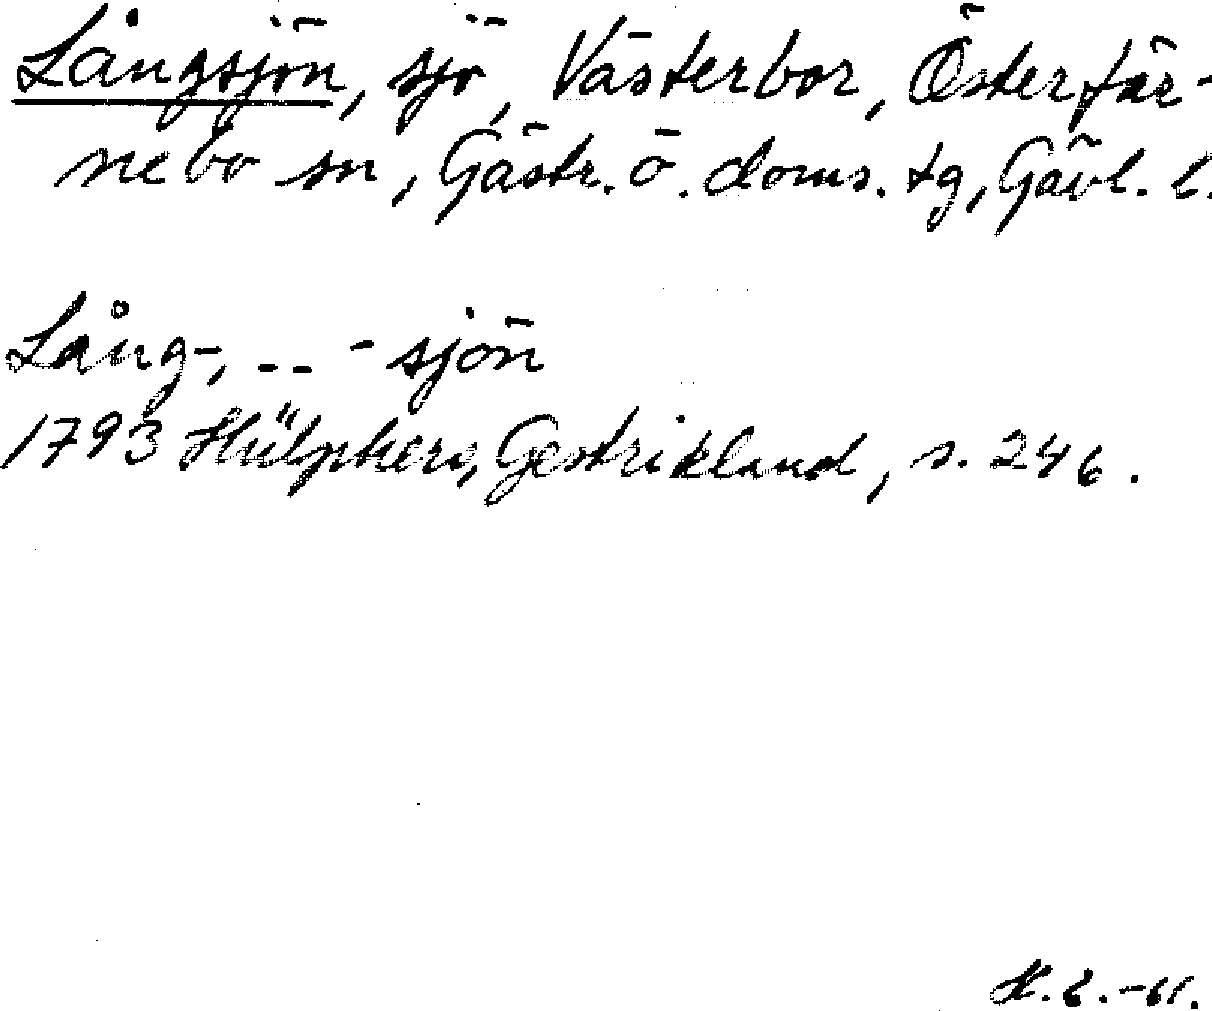 Långsjön, sjö, Västerbor, Österfär-
nebo sn, Gästr. ö. doms. tg, Gävl. l.
Lång-, -- - sjön
1793 Hülphers, Gestrikland, s. 246.
H. L. -61.